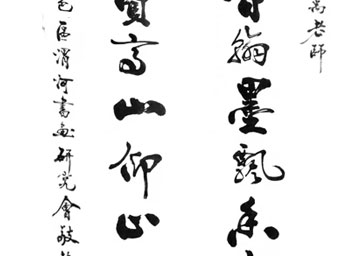 老師
翰墨飄香
高山仰止
區渭河書画研究會敬